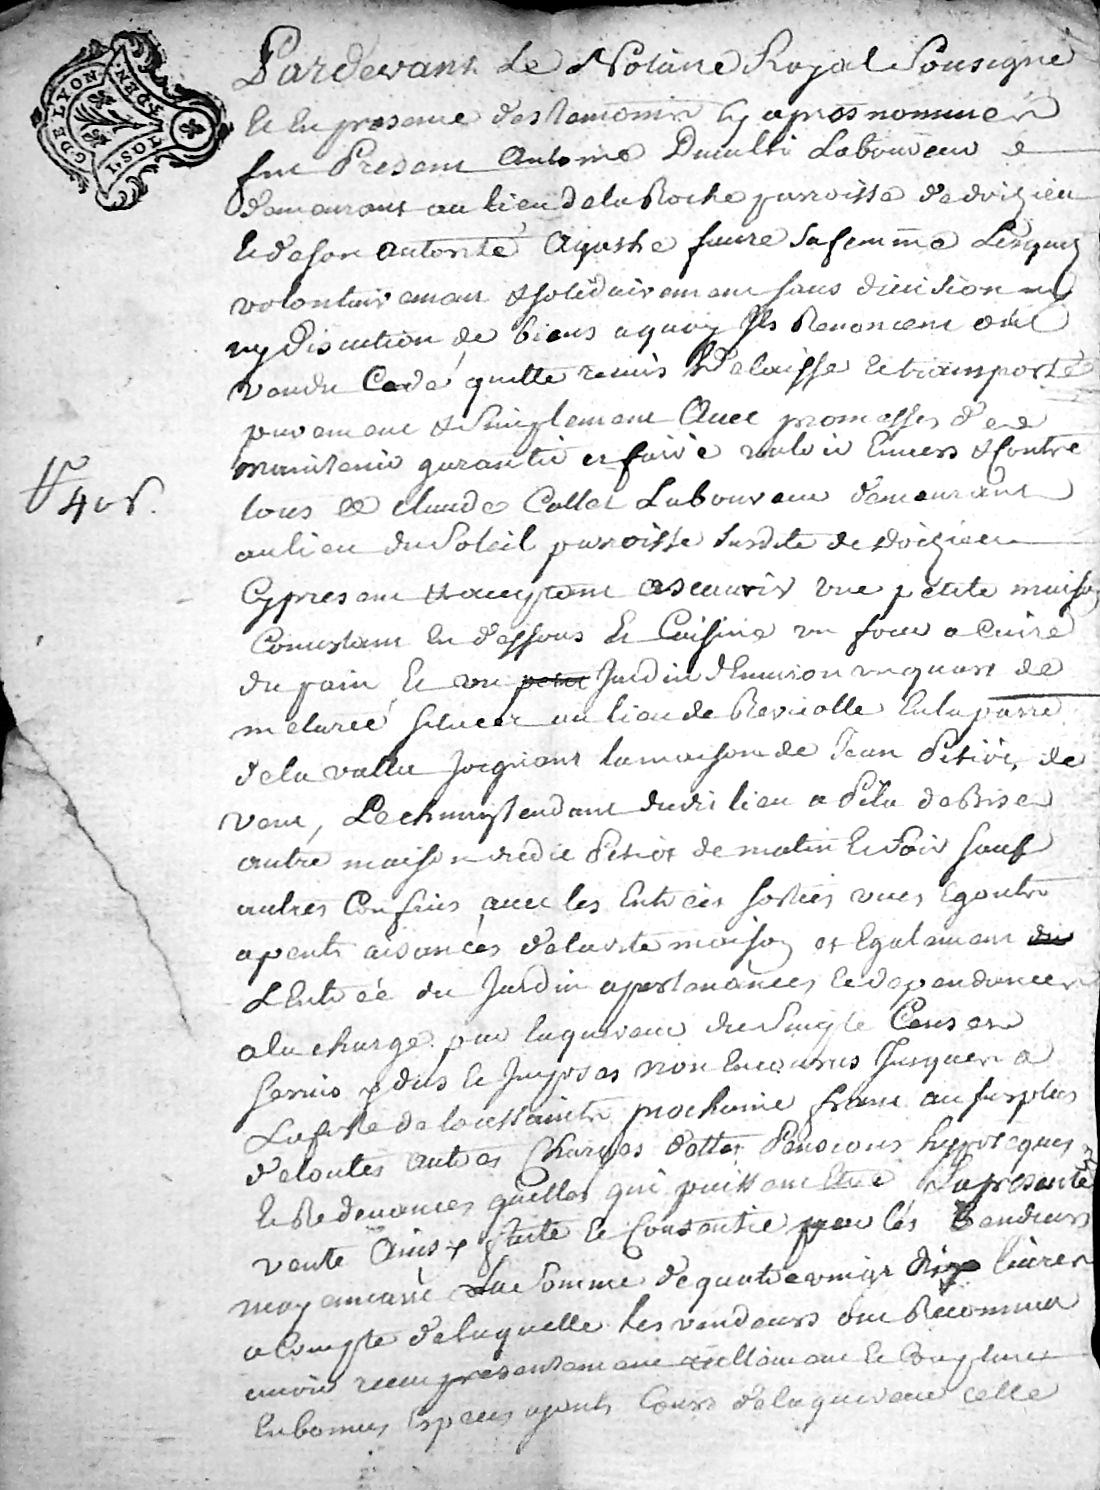 G. DE LYON
1. SOL. 4 DEN.
Pardevant Le Notaire Royal Soussigné
Et En presence des temoins Cy apres nommer
fut Present Antoine Laboureur
demeurant au lieu dela Roche parroisse de doizieu
Et de son autorité Agathe faure sa femme Lesquels
volontairement & solidairement sans division ny
ny discution de biens aquoy Ils Renoncent ont
vendu Cedé quitté remis Delaissé et transporté
purement & Simplement Avec promesses de
maintenir garantir et faire valoir Envers & Contre
tous a Claude Collet Laboureur demeurant
au lieu du Soleil parroisse susdite de doizieu
Cy present & acceptant asçauoir vne petite maison
Consistant En dessous et Cuisine vn four a Cuire
du pain et vn petit Jardin d'Environ vn quart de
meturée Situéer au lieu de Revicolle En la parre
dela valla Joignant la maison de Jean Petiot de
vent, Le chemin tendant dudit lieu a de Bise
autre maison dudit Petiot de matin Et Soir sauf
autres Confins avec les Entrées sorties vues Egouts
apents aisances de ladite maison et Egalement du
L'Entrée du Jardin apartenances Et dependances
ala charge par Laquereur du Simple Cens et
Servis dus et Imposés non Encourus Jusques a
La feste de toussaints prochaine franc au surplus
de toutes autres Charges dettes Pensions hypoteques
Et Redevances quelles qui puissent Etre La presente
vente Ainsy faite Et Consentie par les Vendeurs
moyennant La Somme de quatre vingt dix livres
a Compte de laquelle les vendeurs ont Reconnu
avoir receu presentement réellement Et Comptant
En bonnes Especes ayants Cours de laquereur celle
405.